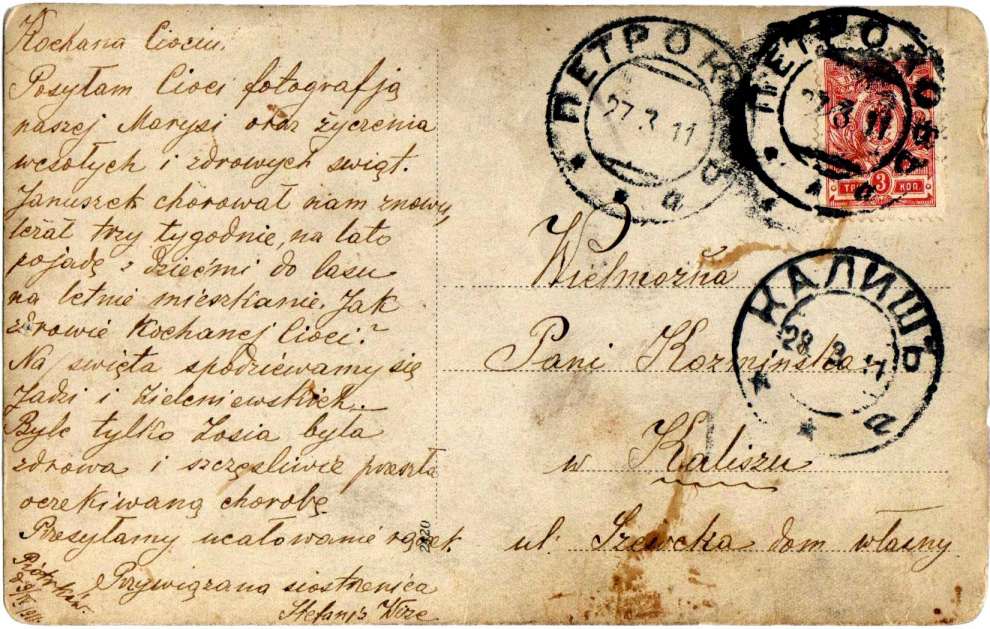 Kochana Ciociu.
Posyłam Cioci fotografją
naszej Marysi oraz życzenia
wesołych i zdrowych swiąt.
Januszek chorował nam znowu,
leżał trzy tygodnie, na lato
pojadę z dziećmi do lasu
na letnie mieszkanie. Jak
zdrowie Kochanej Cioci?
Na święta spodziewamy się
Jadzi i Zieleniewskich.
Byle tylko Zosia była
zdrowa i szczęsliwie przeszła
oczekiwaną chorobę.
Przesyłamy ucałowanie rączek.
Przywiązana siostrzenica
Stefanja
Piotrków
1911
2420
ПЕТРОКОВ
27.3.11
а
ПЕТРОКОВ
27.3.11
а
ТРИ 3 КОП.
КАЛИШЪ
28.3.11
а
Wielmożna
Pani Kozmińska
w Kaliszu
ul. Szewcka dom własny